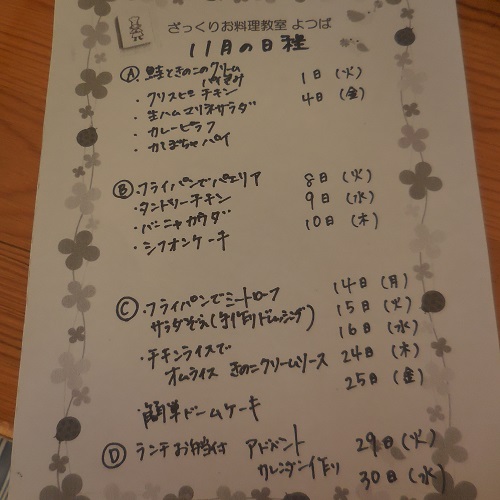 ざっくりお料理教室 よつば
11月の日程
Ⓐ・鮭ときのこのクリーム 1日(火)
・クリスピーチキン 4日(金)
・生ハムマリネサラダ
・カレーピラフ
・かぼちゃパイ
Ⓑ・フライパンでパエリア 8日(火)
・タンドリーチキン 9日(水)
・バーニャカウダ 10日(木)
・シフォンケーキ
Ⓒ・フライパンでミートローフ 14日(月)
サラダぞえ(手作りドレッシング) 15日(火)
16日(水)
・チキンライスで 24日(木)
オムライス きのこクリームソース 25日(金)
・簡単ドームケーキ
Ⓓ ランチお弁当付 アドベント 29日(火)
カレンダー作り 30日(水)